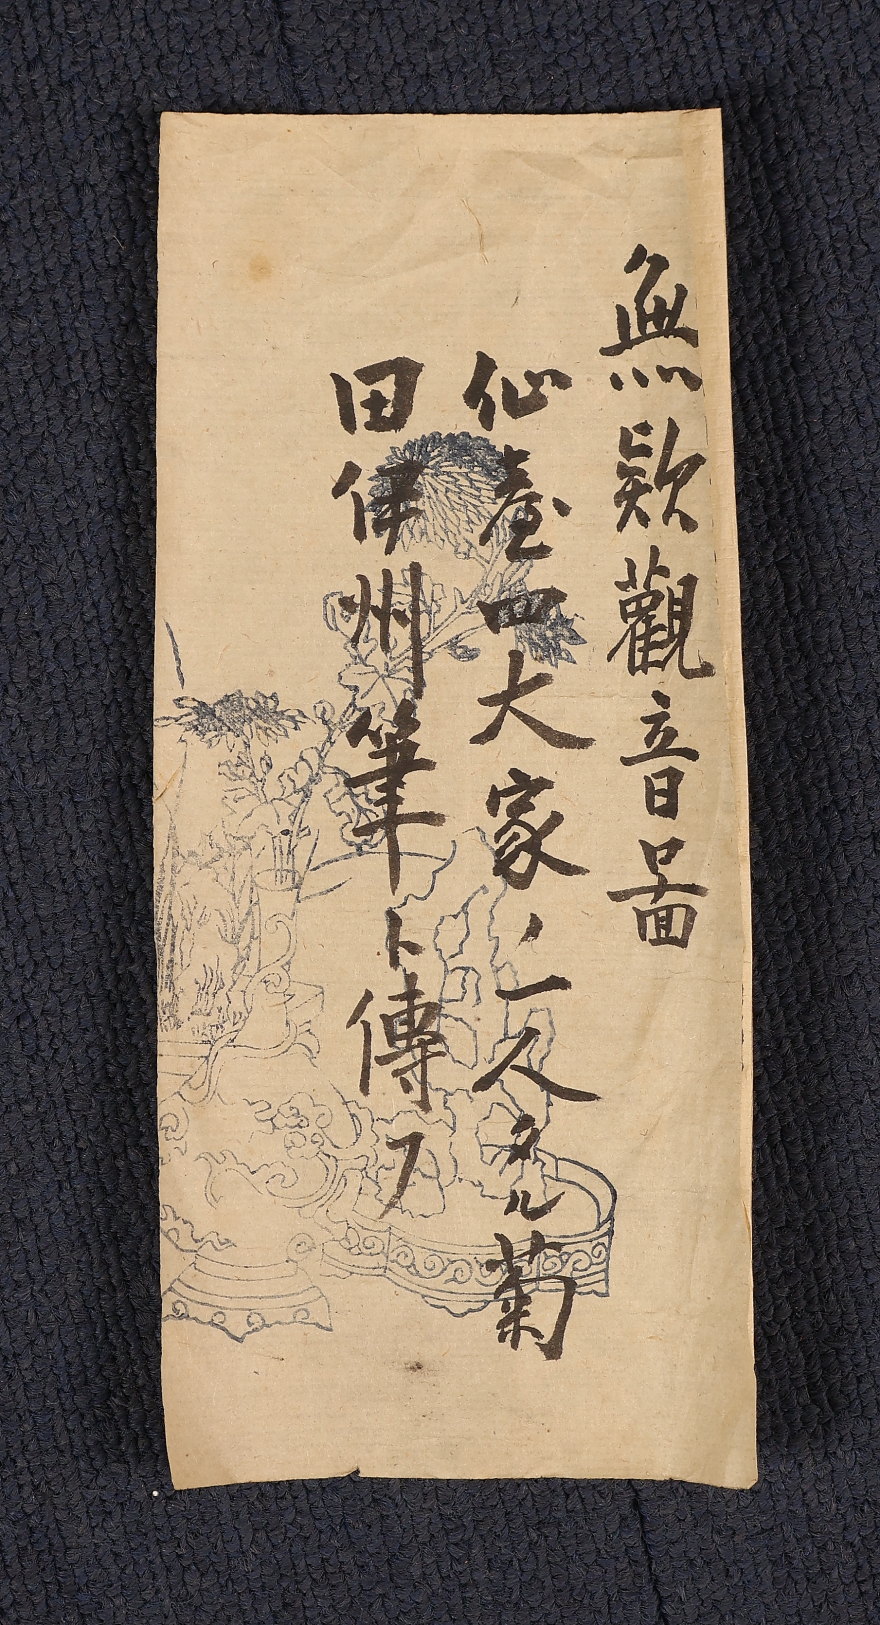 無欵觀音圖
仙臺四大家ノ一人タル菊
田伊州筆ト傳フ